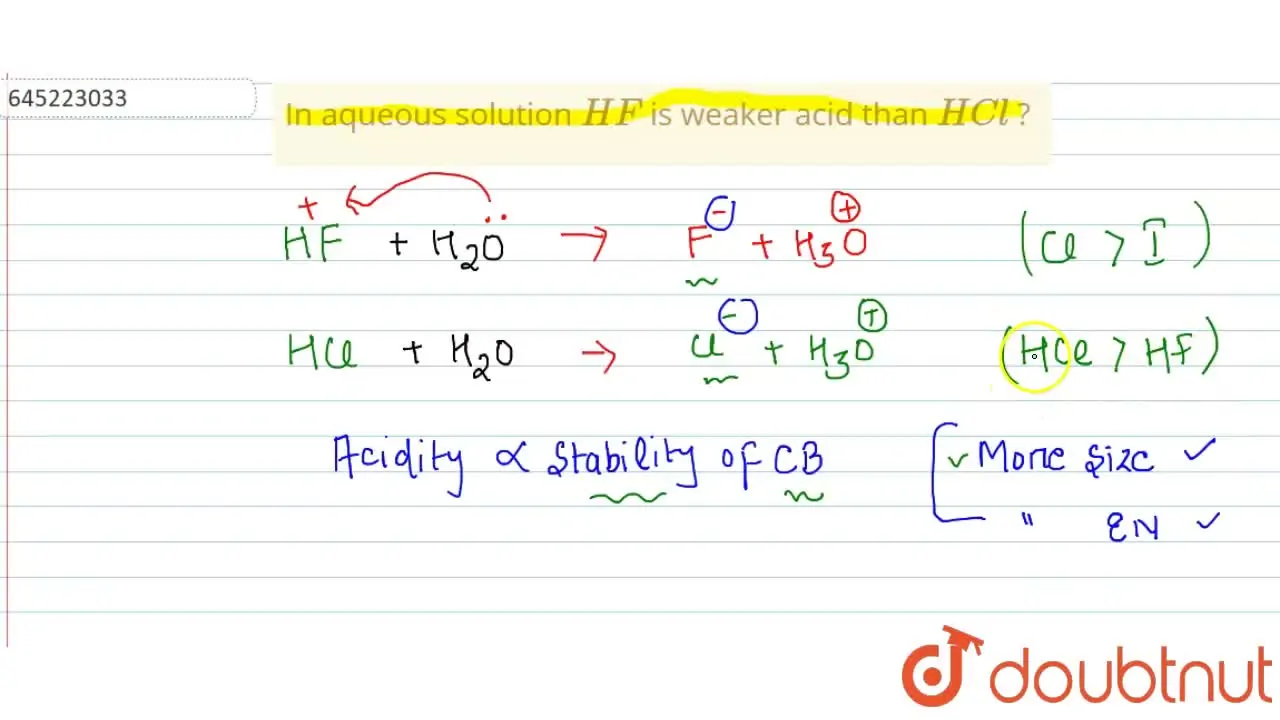 645223033
In aqueous solution HF is weaker acid than HCl ?
HF + H2Ö → F⊖ + H3O⊕ (Cl > I)
+
HCl + H2O → Cl⊖ + H3O⊕ (HCl > HF)
Acidity ∝ Stability of CB
✓ More size ✓
" EN ✓
doubtnut